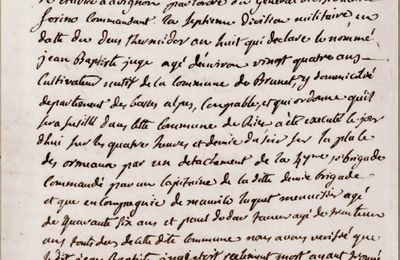 à avignon par ordre du General
commandant la Septieme Division militaire, en
date du deux thermidor an huit qui declare le nommé
jean Baptiste juge agé denviron vingt quatre ans
Cultivateur natif de la Commune de Brunet y domicilié
departement des basses alpes, Coupable, et qui ordonne quil
sera fusillé dans cette Commune de Riez a été executé le jour
dhui sur les quatre heures et demie du soir sur la place
des ormeaux par un detachement de la brigade
commandé par un capitaine de la ditte demie brigade
et que en compagnie de agé
de quarante six ans et paul agé de
ans touts deux de cette dite Commune nous avons verifié que
le dit jean Baptiste juge etoit reelement mort ayant